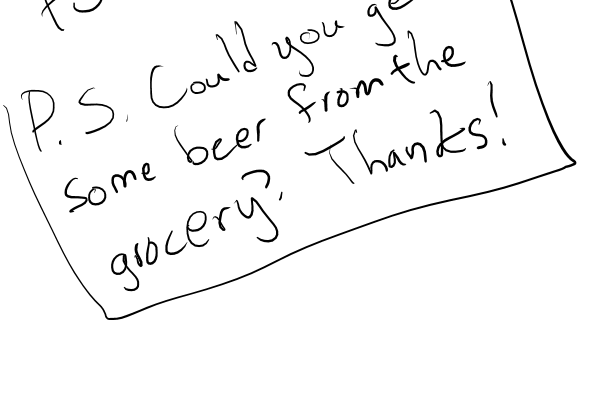 P.S. Could you ge
some beer from the
grocery? Thanks!